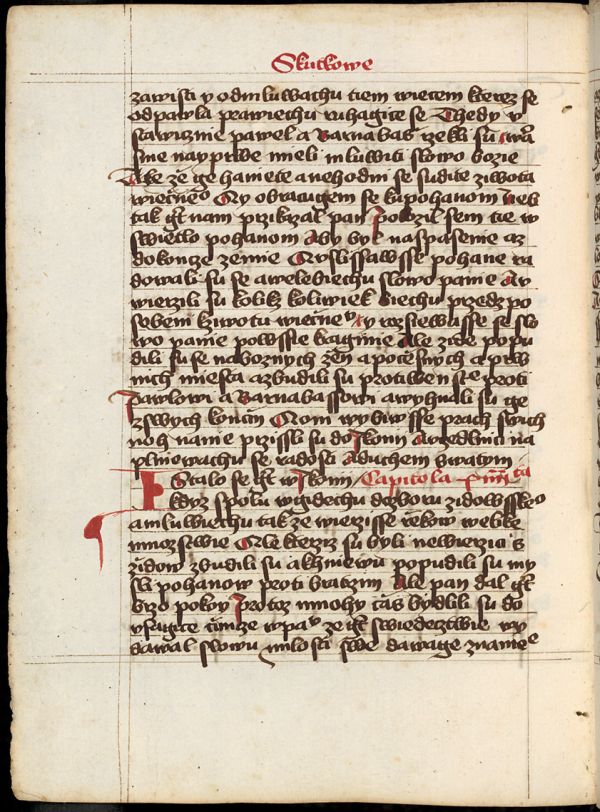 Skutkowe
zawisti y odmluwachu tiem wieciem kterez se
od pawla prawiechu ruhagite se Thedy v
stawiznie pawel a Barnabas rzekli su wa
sme nayprwe mieli mluwiti slowo bozie
Ale ze ge hamete a nehodni se sudite ziwota
wieczne⁰ Ny obraczugem se ku pohanom Neb
tak gt nam przikazal pan Polozil sem tie w
swietlo pohanom Aby byl na spasenie az
do koncze zemie Uslissawsse pohane ra
dowali su se a welebiechu slowo panie Ay
wierzili su kolikz koliwiek biechu przedzpo
sobeni k ziwotu wieczne⁰ Ay rozsiewasse se slo
wo panie po wssie kragine Ale zide popu
dili su se naboznych zen a poctiwych a prw
nich miesta a zbudili su protiwenstie proti
Pawlowi a Barnabassowi a wyhnali su ge
z swych koncin A oni wybiwsse prach swich
noh na nie przissli su do Ikonij A vczedlnici na
plniowachu se radosti A duchem swatym
I Stalo se gt w Ikonij Capitola xiiii ta
kdyz spolu wgidechu do zboru zidowsske⁰
a mluwiechu tak ze wierzisse rekow welike
mnozstwie Ale kterziz su byli newierzici z
zidow zbudili su a k hniewu popudili su my
sli pohanow proti bratrzim Ale pan dal gt
brzo pokoy Protoz mnohy czas bydlili su do
vfagite czinieze w panu ze gt swiedecztwie wy
dawal slowu milosti swe dawage znamene